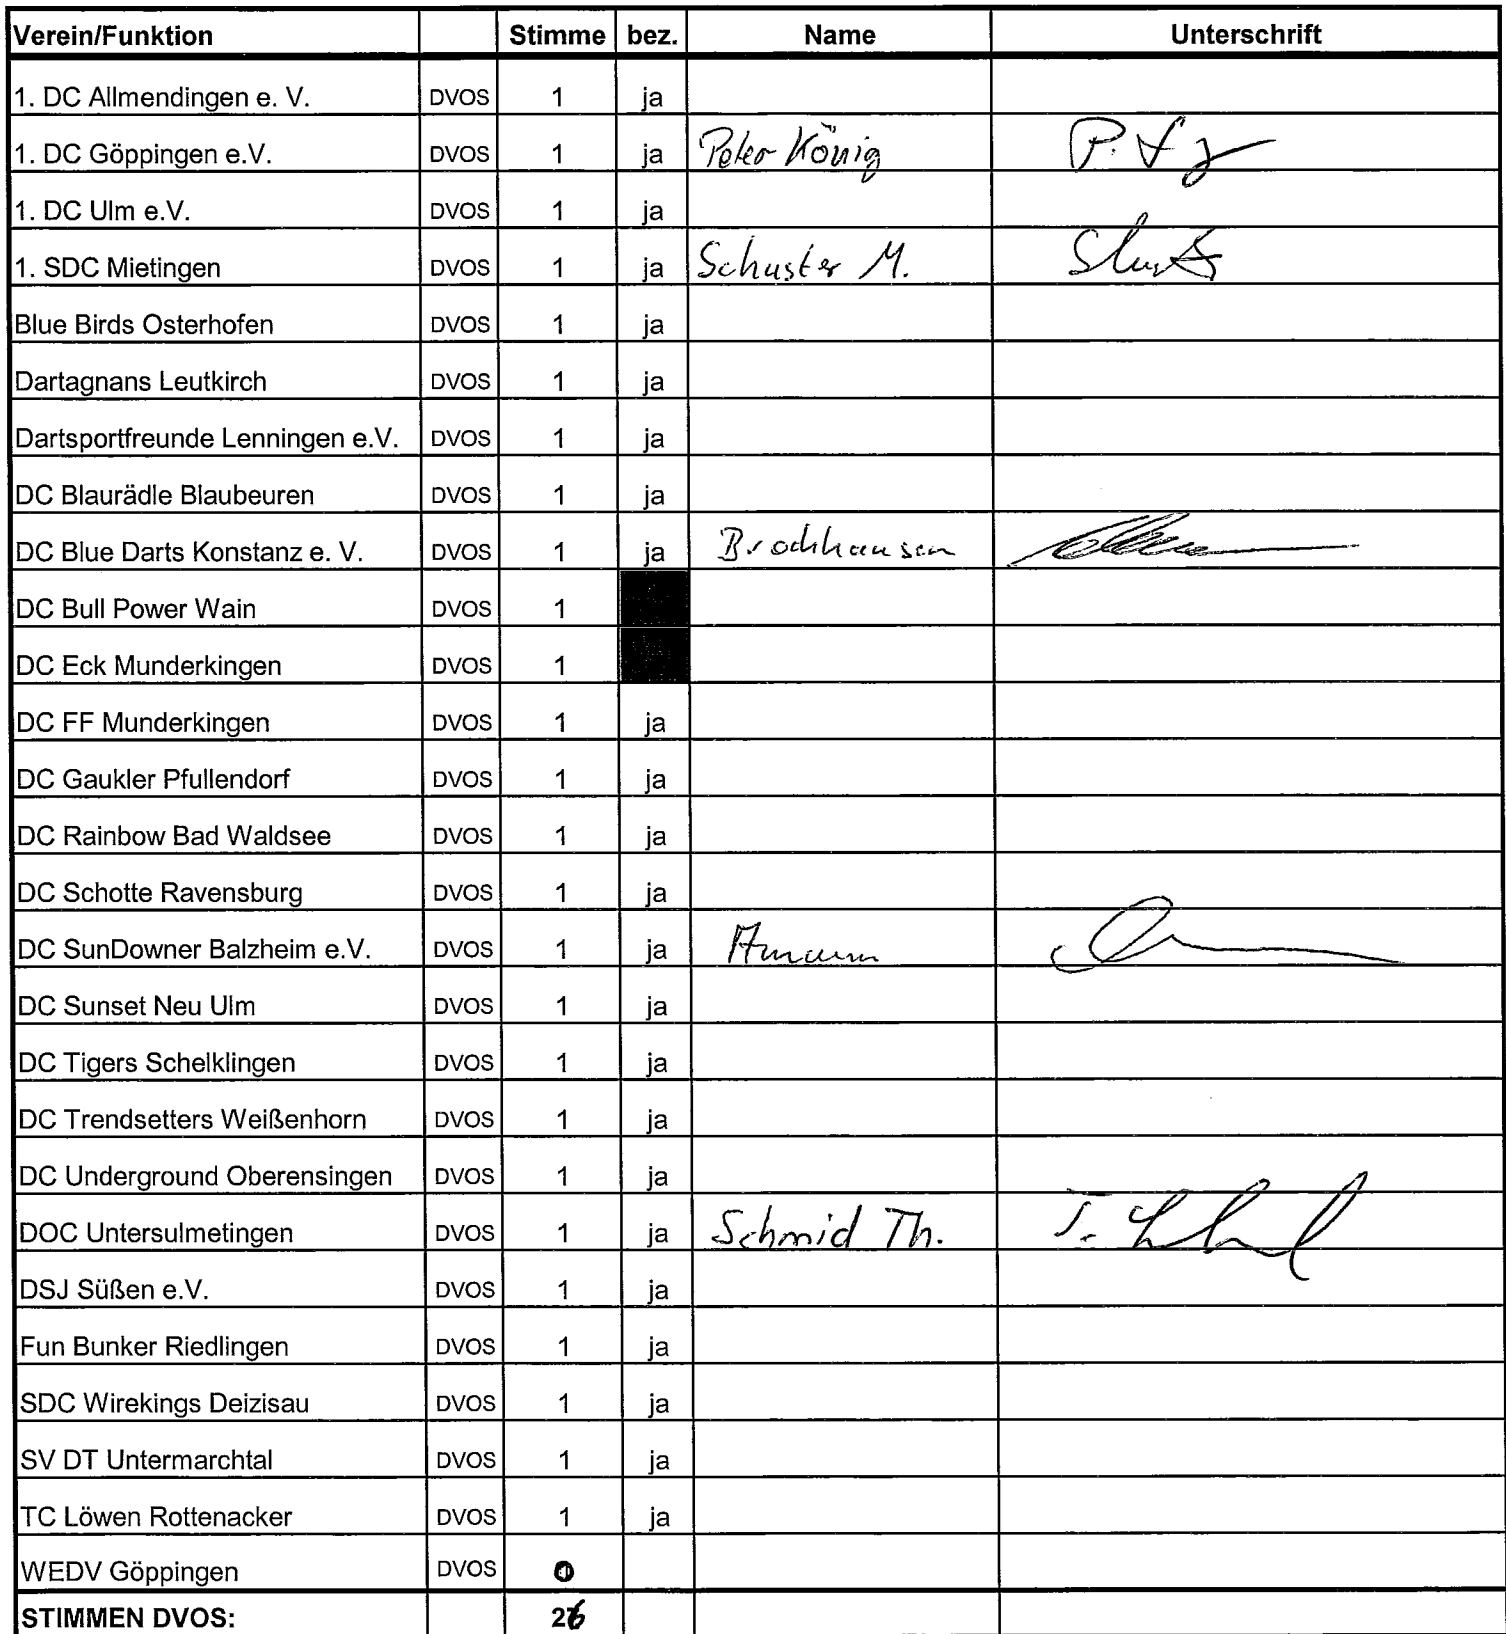 Verein/Funktion Stimme bez. Name Unterschrift
1. DC Allmendingen e. V. DVOS 1 ja
1. DC Göppingen e.V. DVOS 1 ja Peter König
1. DC Ulm e.V. DVOS 1 ja
1. SDC Mietingen DVOS 1 ja Schuster M.
Blue Birds Osterhofen DVOS 1 ja
Dartagnans Leutkirch DVOS 1 ja
Dartsportfreunde Lenningen e.V. DVOS 1 ja
DC Blaurädle Blaubeuren DVOS 1 ja
DC Blue Darts Konstanz e. V. DVOS 1 ja Brockhausen
DC Bull Power Wain DVOS 1
DC Eck Munderkingen DVOS 1
DC FF Munderkingen DVOS 1 ja
DC Gaukler Pfullendorf DVOS 1 ja
DC Rainbow Bad Waldsee DVOS 1 ja
DC Schotte Ravensburg DVOS 1 ja
DC SunDowner Balzheim e.V. DVOS 1 ja Amann
DC Sunset Neu Ulm DVOS 1 ja
DC Tigers Schelklingen DVOS 1 ja
DC Trendsetters Weißenhorn DVOS 1 ja
DC Underground Oberensingen DVOS 1 ja
DOC Untersulmetingen DVOS 1 ja Schmid Th.
DSJ Süßen e.V. DVOS 1 ja
Fun Bunker Riedlingen DVOS 1 ja
SDC Wirekings Deizisau DVOS 1 ja
SV DT Untermarchtal DVOS 1 ja
TC Löwen Rottenacker DVOS 1 ja
WEDV Göppingen DVOS 0
STIMMEN DVOS: 26